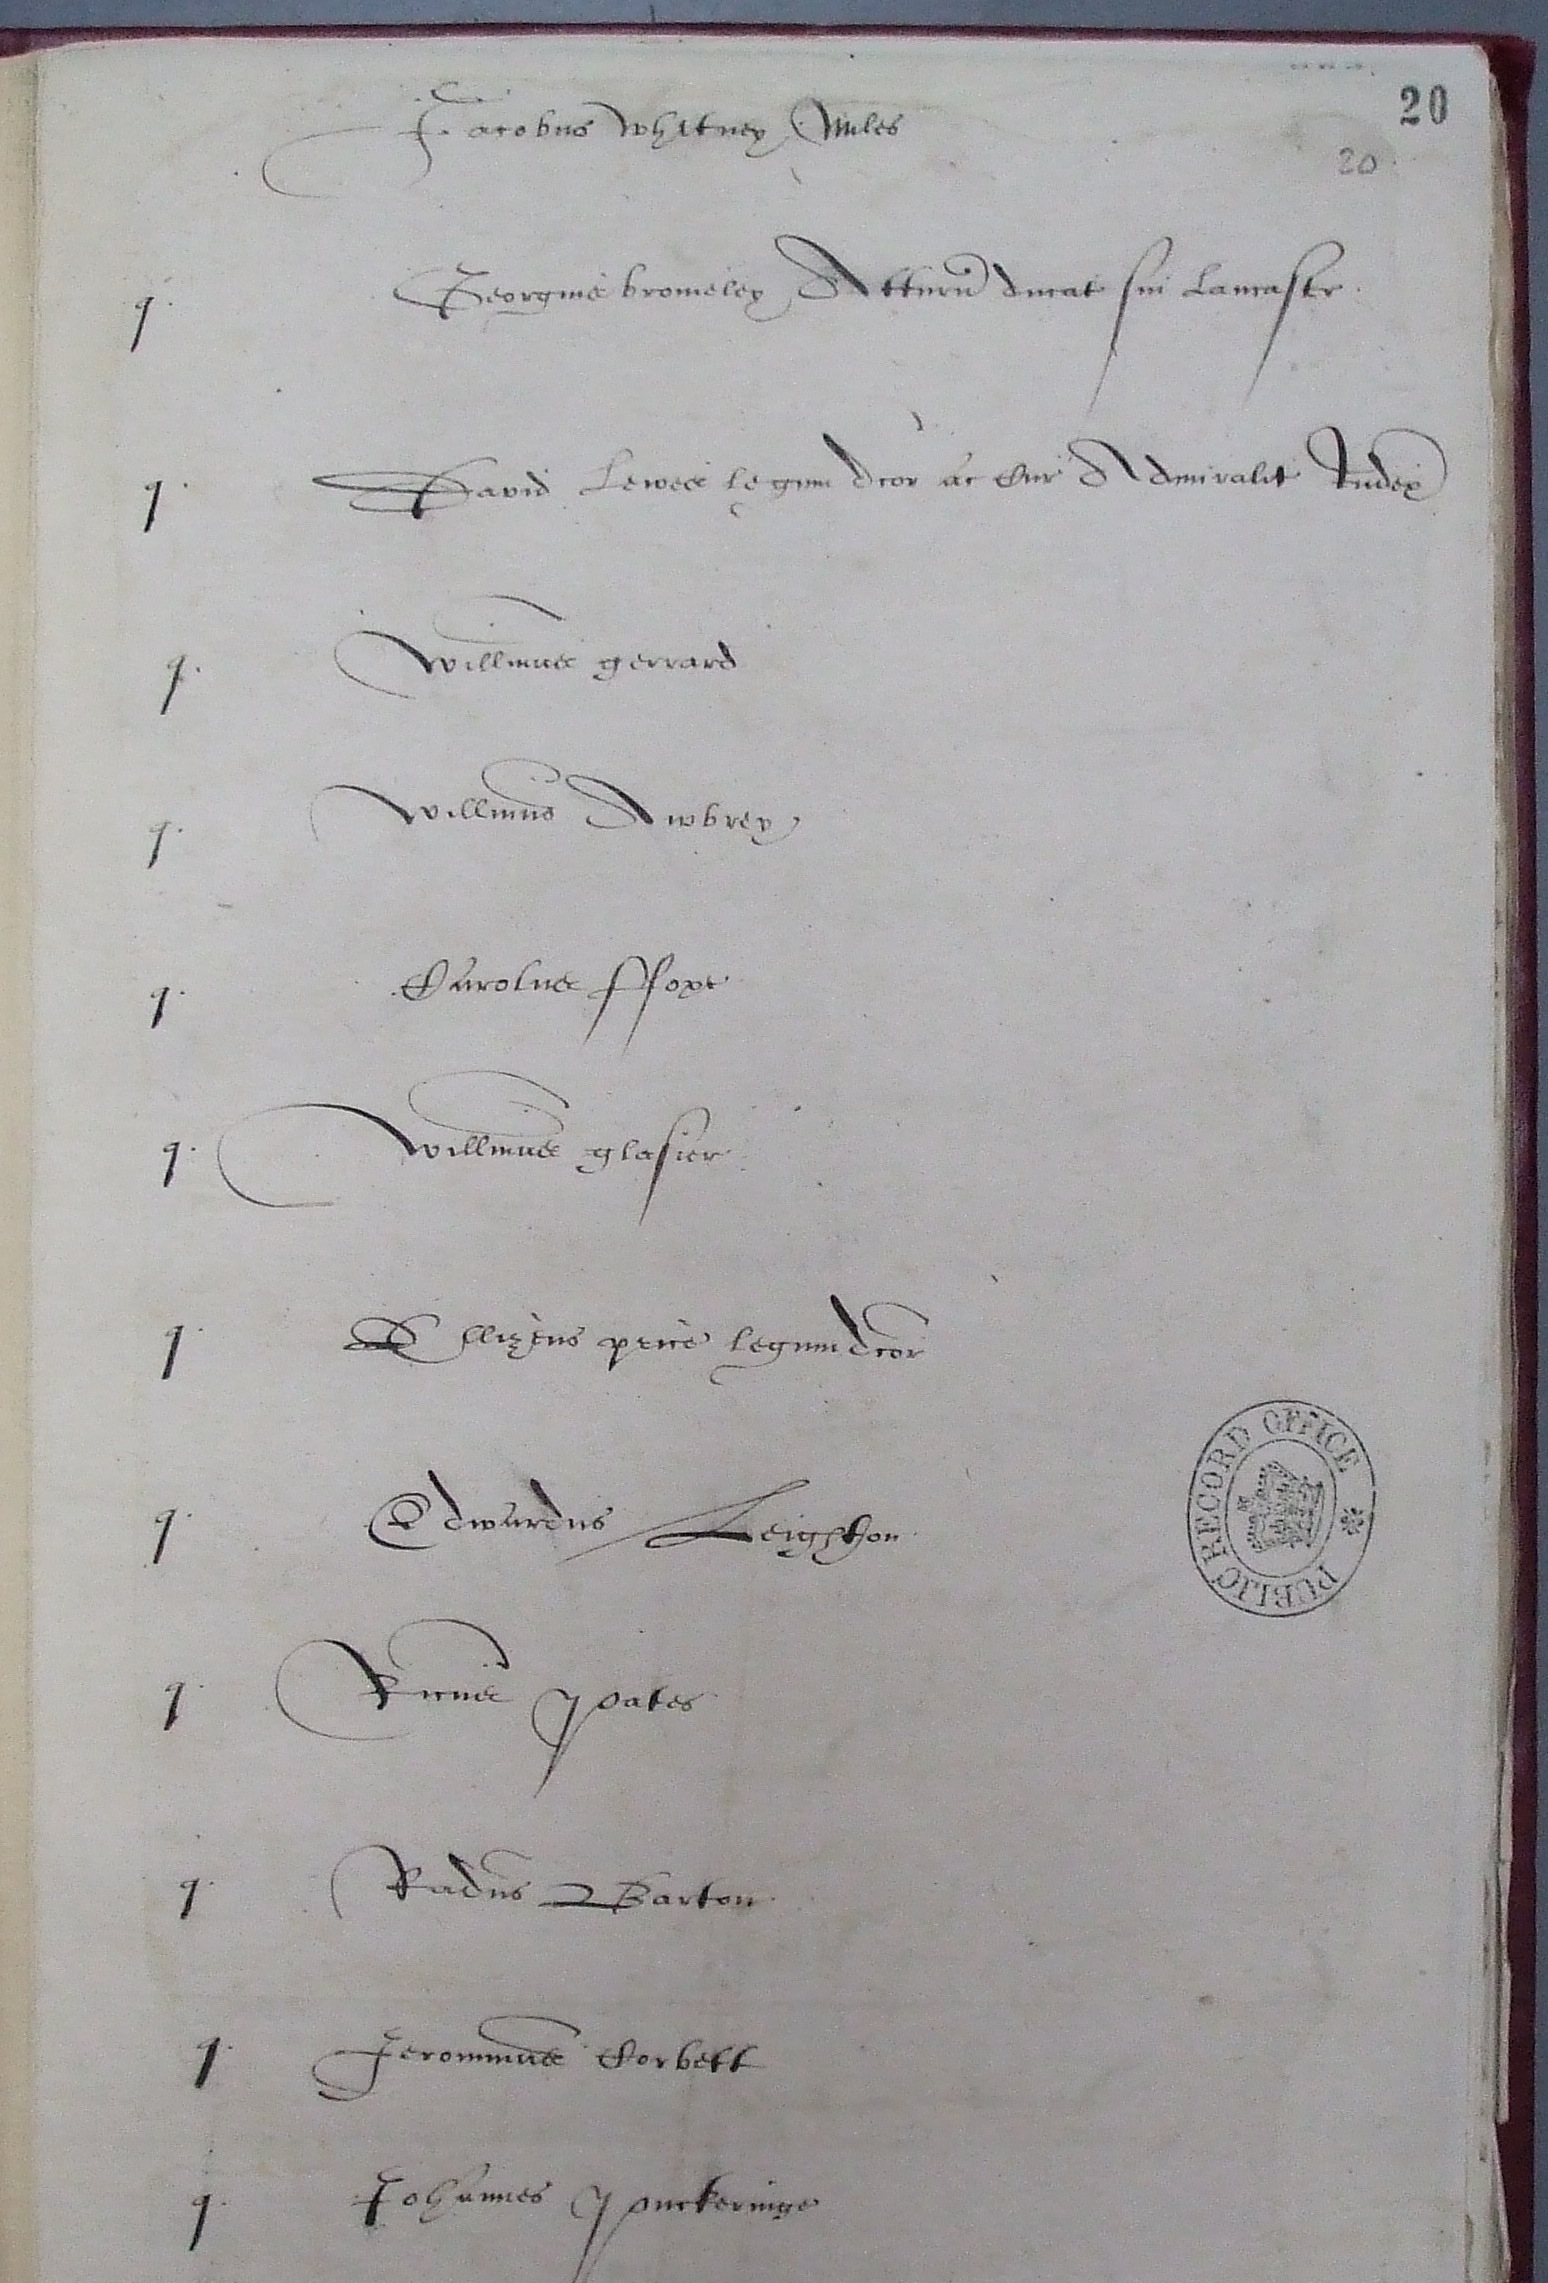 20
20
Jacobus Whitney Miles
q. Georgius bromeley Atturn ducat sui Lancastr
q. David Lewes legum dcor ac Cur Admiralit Judex
q. Willmus gerrard
q. Willmus Awbrey
q. Carolus ffoxe
q. Willmus glasier
q. Ellizeus price legum dcor
q. Edwardus Leighton
PUBLIC RECORD OFFICE
q. Ricus Pates
q. Radus Barton
q. Jeronimus Corbett
q. Johannes Puckeringe